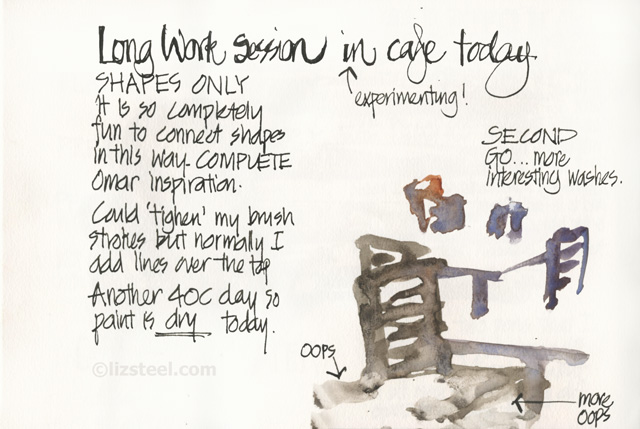 Long Work session in cafe today
experimenting!
SHAPES ONLY
It is so completely
fun to connect shapes
in this way. COMPLETE
Omar inspiration.
Could 'tighen' my brush
strokes but normally I
add lines over the top
Another 40C day so
paint is dry today.
SECOND
GO... more
interesting washes.
OOPS
more
OOPS
©lizsteel.com